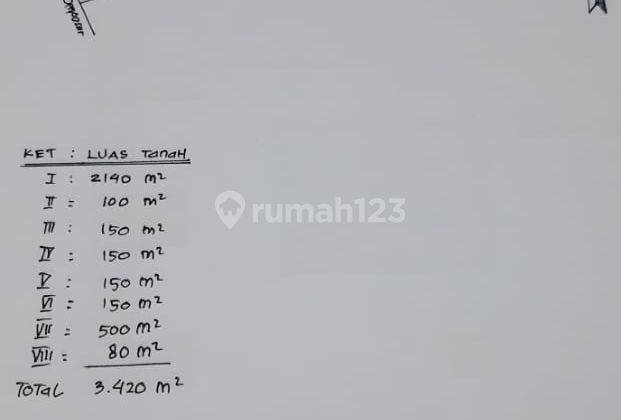 KET : LUAS TanaH
I : 2140 m²
II : 100 m²
III : 150 m²
IV : 150 m²
V : 150 m²
VI : 150 m²
VII : 500 m²
VIII : 80 m²
TOTaL 3.420 m²
rumah123